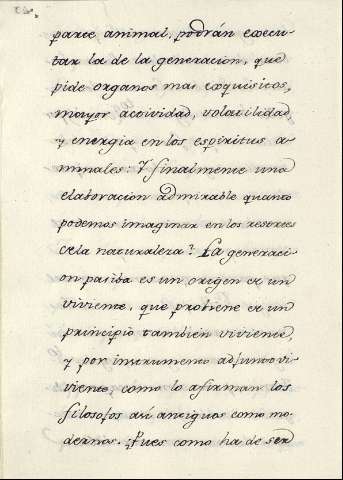 parte animal, podrán execu-
tar la de la generacion, que
pide organos mas exquisitos,
mayor actividad, volatilidad
y energia en los espiritus a-
nimales: Y finalmente una
elaboracion admirable quanto
podemos imaginar en los resortes
de la naturaleza? La generaci-
on pasiba es un origen de un
viviente, que probiene de un
principio tambien viviente,
y por instrumento adjunto vi-
viente, como lo afirman los
filosofos asi antiguos como mo-
dernos. Pues como ha de ser